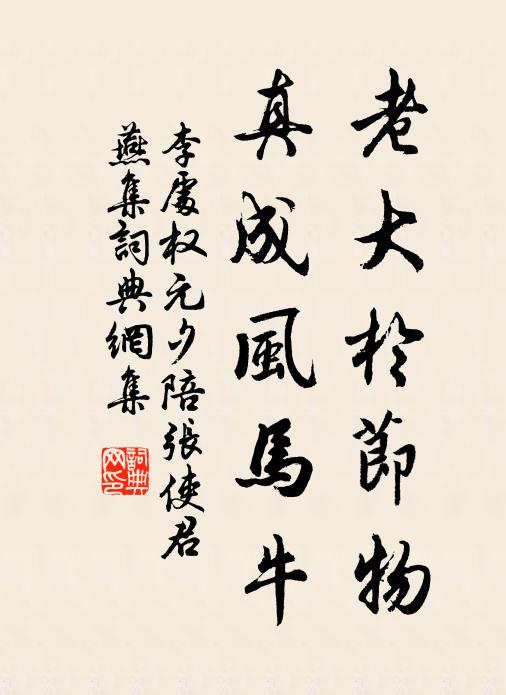 老大於節物
真成風馬牛
李處權元夕陪張使君
燕集詞典網集
詞典網印